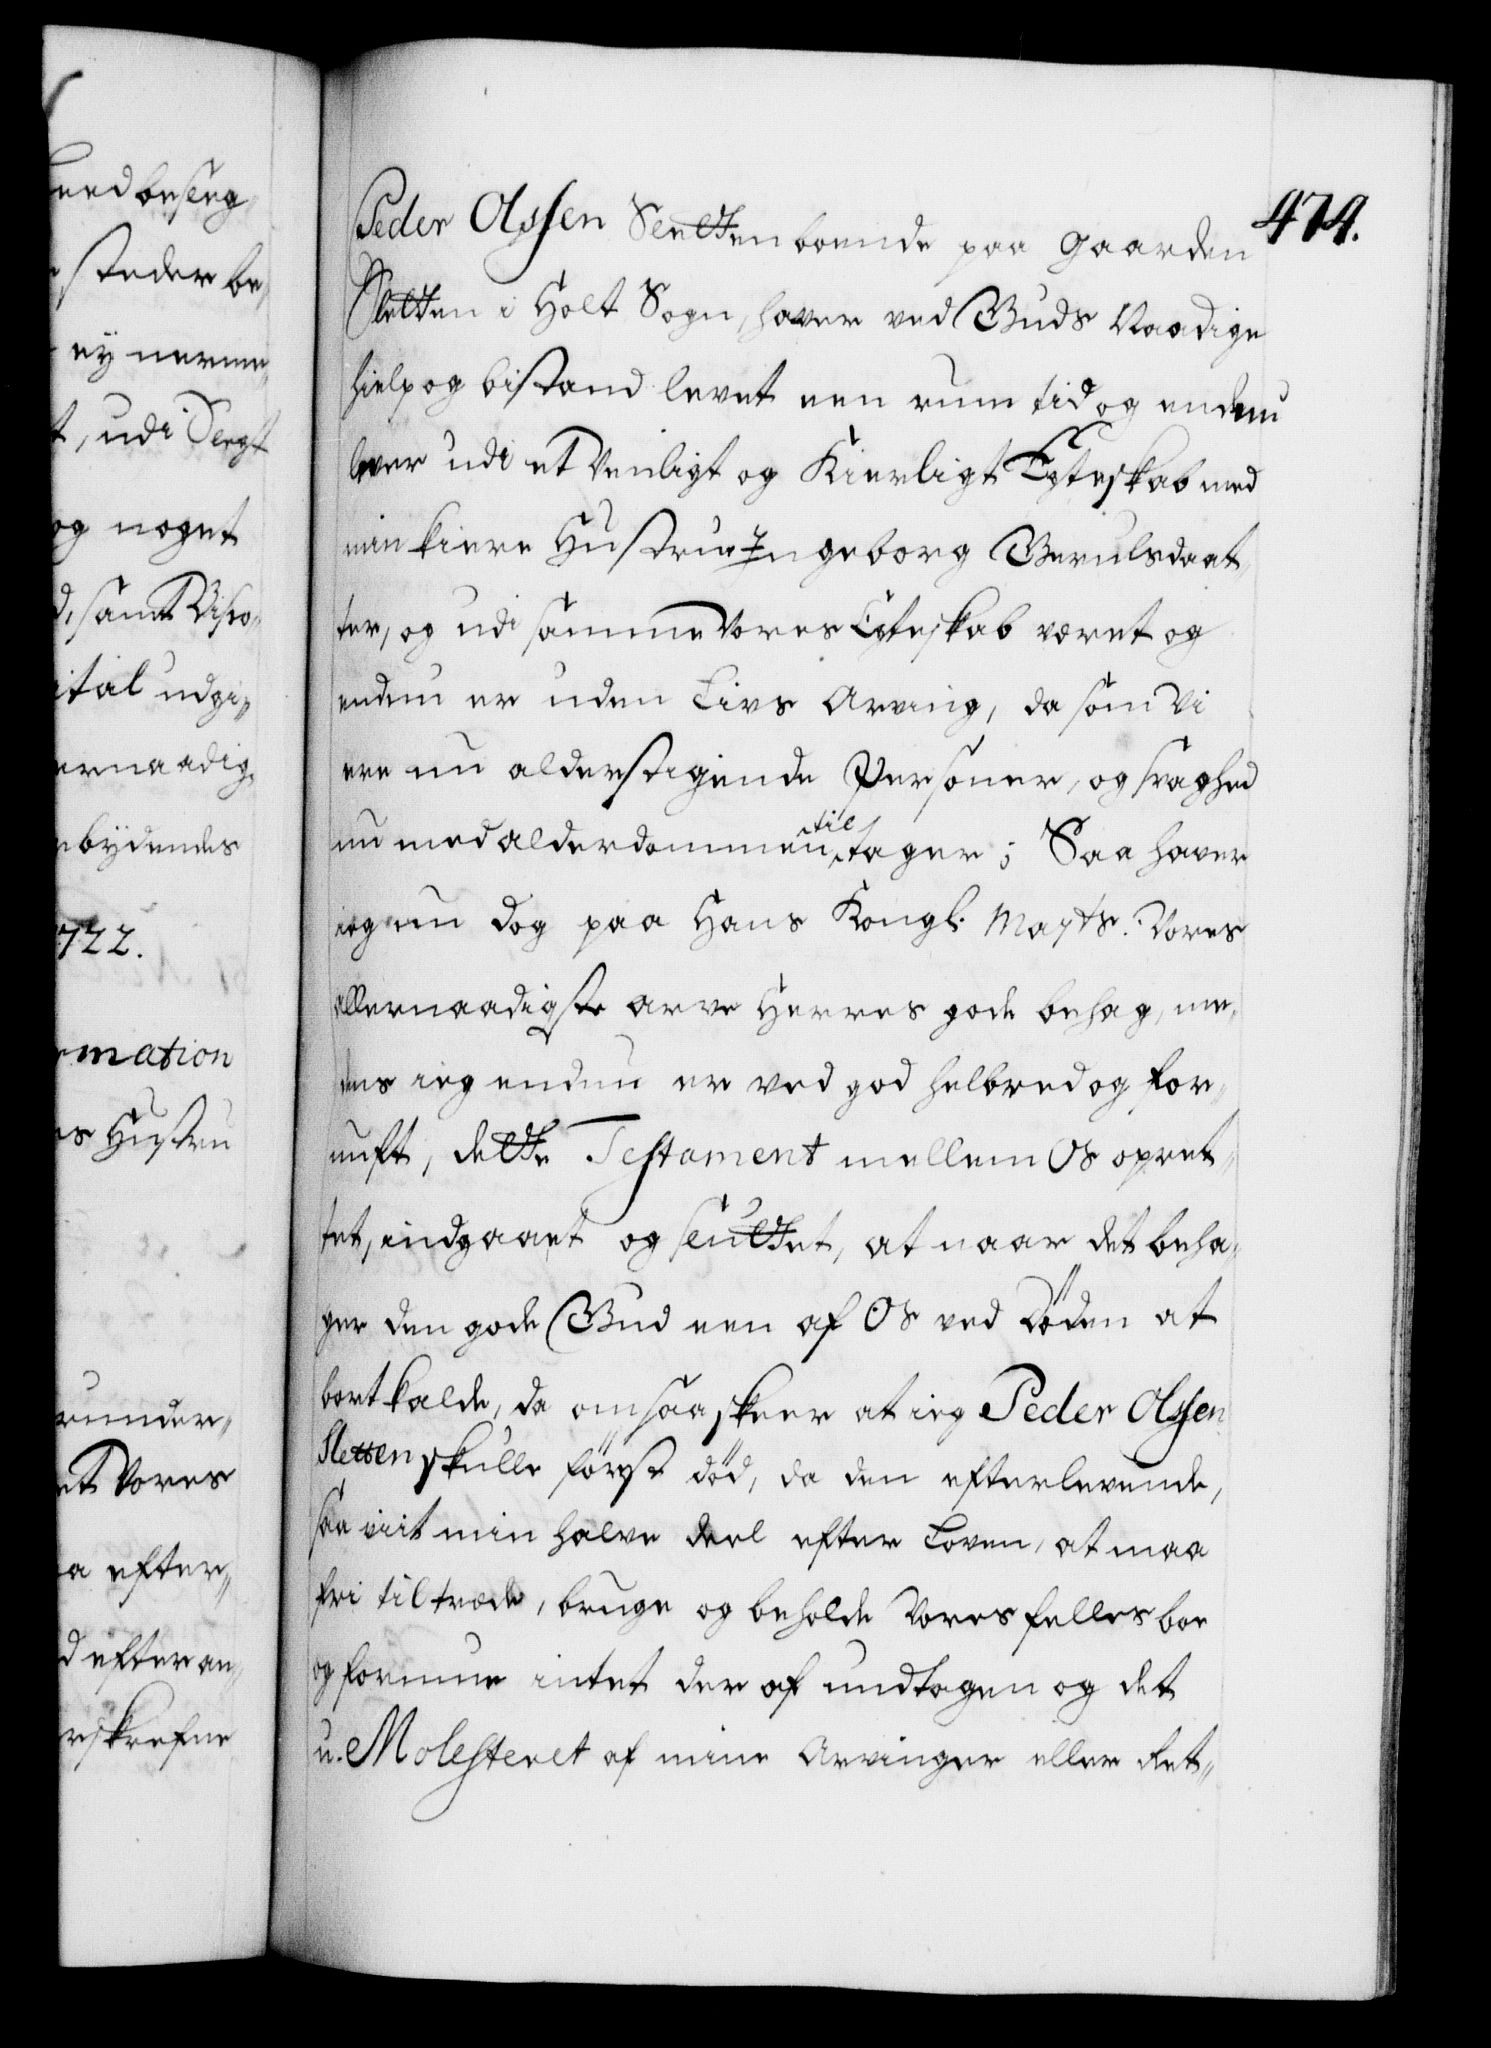 eed besteg
steder be,
ey nerme,
t, udi Slegt
og noget
d, samt Bispo,
ital udgi,,
ernaadig,
ebydendes
722.
rmation
es Hustru
runder,,
et Vores
a efter,,
d efter an,,
rskrefne
474.
Peder Olssen Sletten boende paa Gaarden
Sletten i Holt Sogn, haver ved Guds Naadige
hielp og bistand levet een rum tid og endnu
lever udi et venligt og Kierligt Egteskab med
min kiere Hustrue Ingeborg Gerulsdaat,,
ter, og udi samme Vores Egteskab været og
endnu er uden Livs Arving, da som Vi
ere nu alderstigende Personer, og svaghed
nu med alderdommen til tager; Saa haver
ieg nu dog paa Hans Kongl. Mayts. Vores
allernaadigste arve Herres gode behag, me,
dens ieg endnu er ved god helbred og for,,
nuft, dette Testament mellem Os opret,,
tet, indgaaet og sluttet, at naar det beha,,
ger den gode Gud een af Os ved Döden at
bortkalde, da om saa skeer at ieg Peder Olssen
Sletten skulle först död, da den efterlevende,
saa viit min halve deel efter Loven, at maa
fri tiltræde, bruge og beholde Vores felles boe
og formue intet der af undtagen og det
u-Molesteret af mine Arvinger eller Ret,,